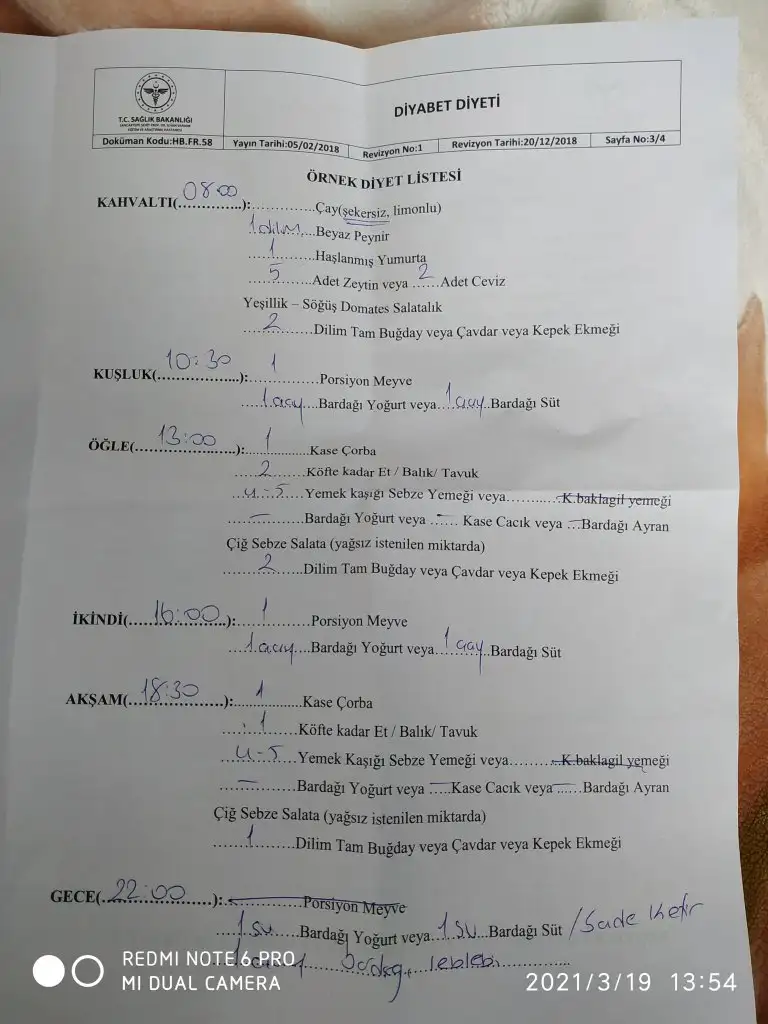 T.C. SAĞLIK BAKANLIĞI
DİYABET DİYETİ
Doküman Kodu:HB.FR.58 Yayın Tarihi:05/02/2018 Revizyon No:1 Revizyon Tarihi:20/12/2018 Sayfa No:3/4
ÖRNEK DİYET LİSTESİ
KAHVALTI(08:00):..............Çay(şekersiz, limonlu)
1 dilim...Beyaz Peynir
1.........Haşlanmış Yumurta
5.........Adet Zeytin veya 2 Adet Ceviz
Yeşillik – Söğüş Domates Salatalık
2.........Dilim Tam Buğday veya Çavdar veya Kepek Ekmeği
KUŞLUK(10:30): 1 Porsiyon Meyve
1 çay Bardağı Yoğurt veya 1 çay Bardağı Süt
ÖĞLE(13:00): 1 Kase Çorba
2 Köfte kadar Et / Balık/ Tavuk
4-5 Yemek kaşığı Sebze Yemeği veya..........K.baklagil yemeği
– Bardağı Yoğurt veya – Kase Cacık veya – Bardağı Ayran
Çiğ Sebze Salata (yağsız istenilen miktarda)
2 Dilim Tam Buğday veya Çavdar veya Kepek Ekmeği
İKİNDİ(16:00): 1 Porsiyon Meyve
1 çay Bardağı Yoğurt veya 1 çay Bardağı Süt
AKŞAM(18:30): 1 Kase Çorba
1 Köfte kadar Et / Balık/ Tavuk
4-5 Yemek Kaşığı Sebze Yemeği veya.........K.baklagil yemeği
– Bardağı Yoğurt veya – Kase Cacık veya – Bardağı Ayran
Çiğ Sebze Salata (yağsız istenilen miktarda)
1 Dilim Tam Buğday veya Çavdar veya Kepek Ekmeği
GECE(22:00): Porsiyon Meyve
1 su Bardağı Yoğurt veya 1 su Bardağı Süt / Sade kefir
1 çay bardağı leblebi
REDMI NOTE 6 PRO
MI DUAL CAMERA
2021/3/19 13:54